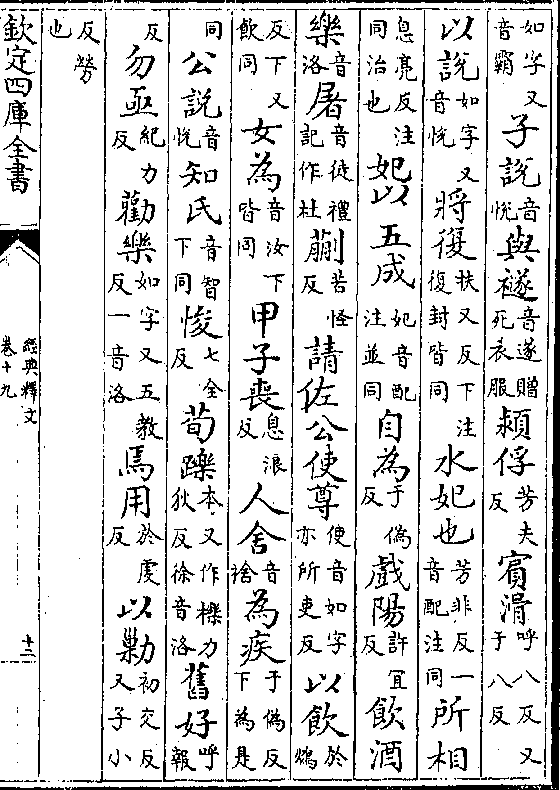 如字又音霸子說音悅與襚音遂贈死衣服頴俘芳夫反賓滑呼八反又于八反
以說如字又音悅將復扶又反下注復封皆同水妃也芳非反一音配注同所相
息亮反注同治也妃以五成妃音配注並同自為于偽反戲陽許宜反飲酒
樂音洛屠音徒禮記作杜蒯苦怪反請佐公使尊使音如字亦所吏反以飲於鴆
反下又飲同女為音汝下皆同甲子喪息浪反人舍音捨為疾于偽反下為是
同公說音悅知氏音智下同悛七全反荀躒本又作櫟力狄反徐音洛舊好呼報
反勿亟紀力反勸樂如字又五教反一音洛焉用於虔反以勦初交反又子小
反勞也
欽定四庫全書
經典釋文
卷十九
十三